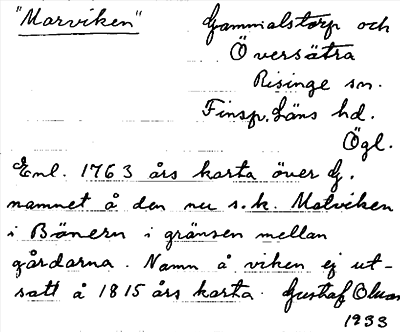 "Marviken" Gammalstorp och
Översätra
Risinge sn.
Finsp. Läns hd.
Ögl.
Enl. 1763 års karta över G.
namnet å den nu s.k. Matviken
i Bönern i gränsen mellan
gårdarna. Namn å viken ej ut-
satt å 1815 års karta. Gustaf
1933